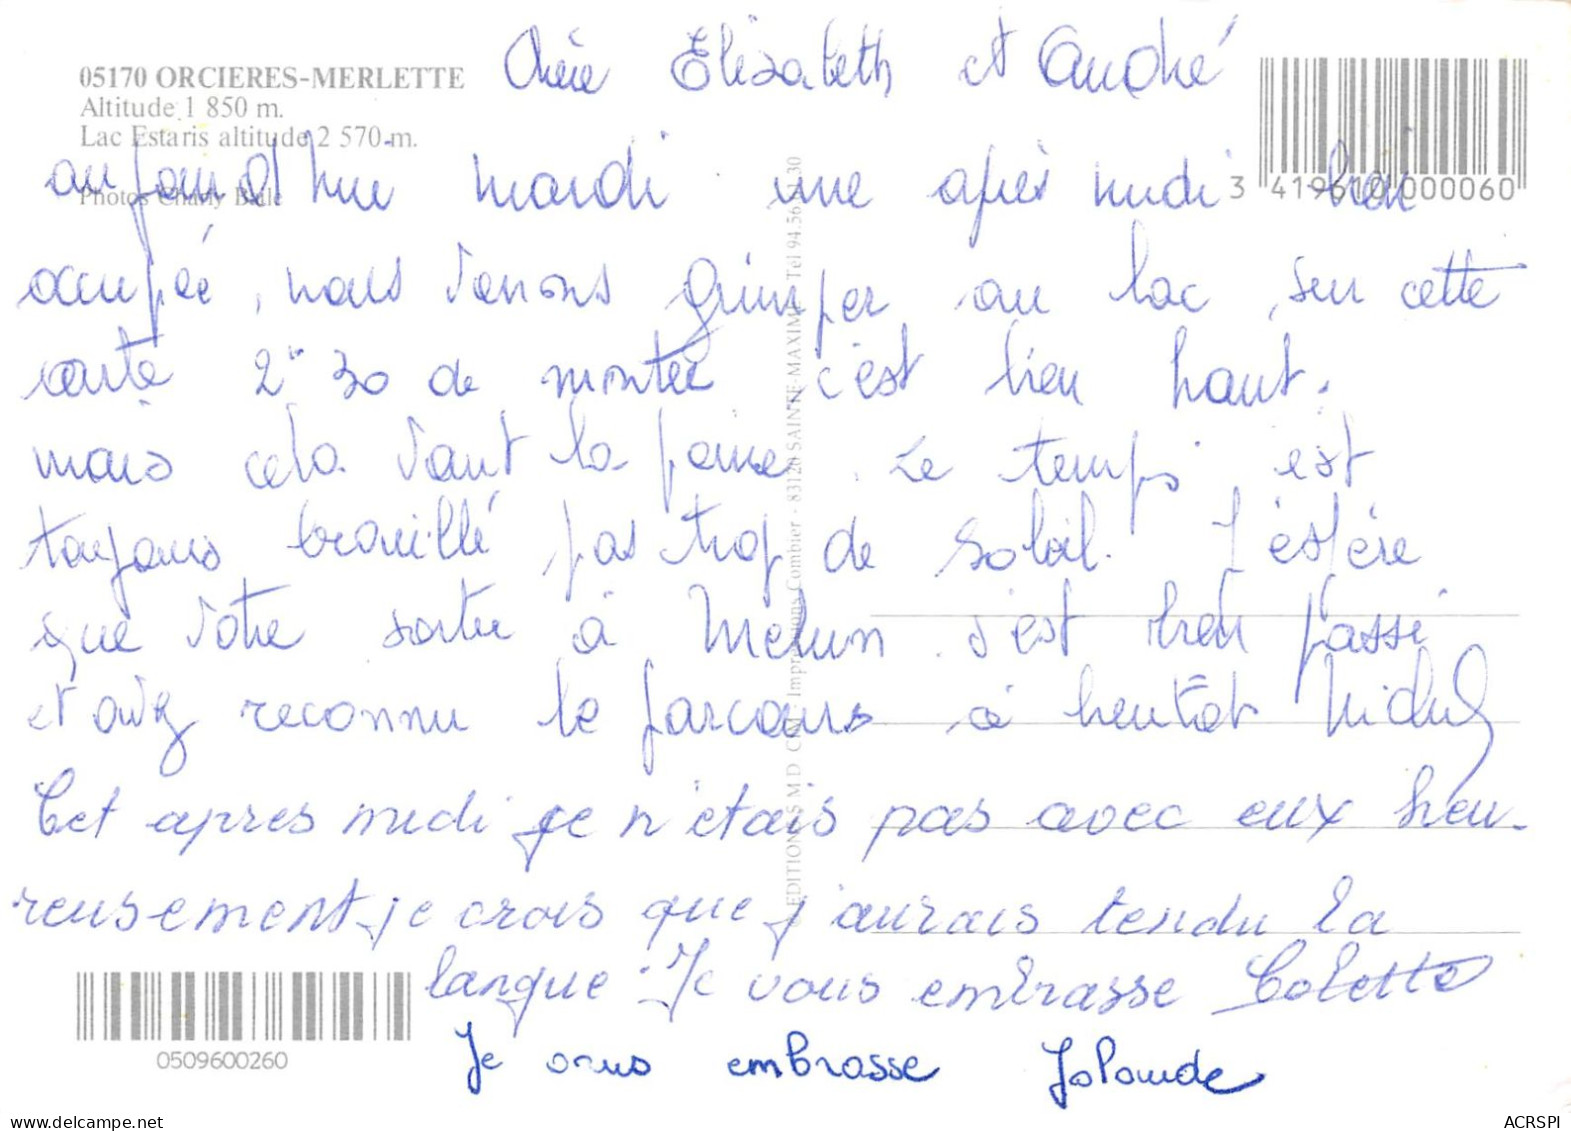 05170 ORCIERES-MERLETTE
Altitude 1 850 m.
Lac Estaris altitude 2 570 m.
Photos Charly Bale
Chère Elisabeth et André
aujourd'hui mardi une après midi bien
occupée, nous venons grimper au lac, sur cette
carte 2h 30 de montée c'est bien haut.
mais cela vaut la peine. Le temps est
toujours brouillé pas trop de soleil. J'éspère
que votre sortie à Melun s'est bien passé
et avez reconnu le parcours à bientôt Michel
Cet apres midi je n'étais pas avec eux heu-
reusement je crois que j'aurais tendu la
langue. Je vous embrasse Colette
Je vous embrasse Jolande
EDITIONS M.D CIM Impressions Combier - 83120 SAINTE-MAXIME Tel 94.56
3 419610 000060
0509600260
ACRSPI